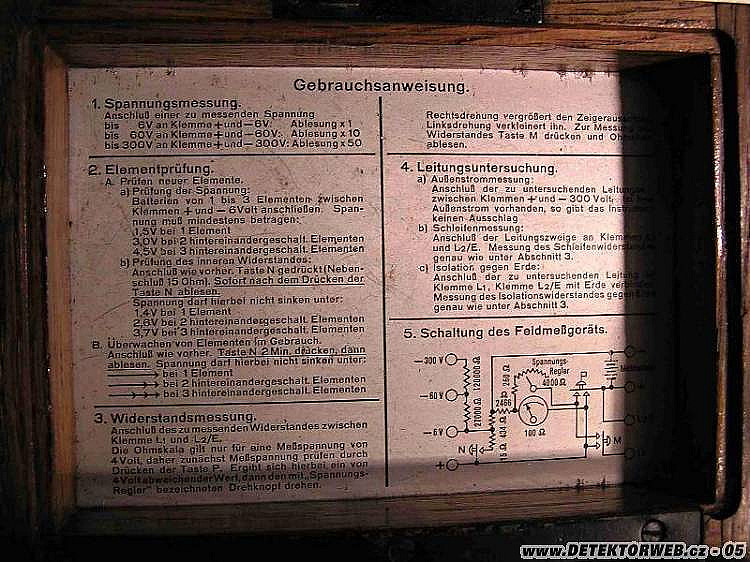 Gebrauchsanweisung.
1. Spannungsmessung.
Anschluß einer zu messenden Spannung
bis 6V an Klemme + und – 6V: Ablesung x 1
bis 60V an Klemme + und – 60V: Ablesung x 10
bis 300V an Klemme + und – 300V: Ablesung x 50
2. Elementprüfung.
A. Prüfen neuer Elemente.
a) Prüfung der Spannung:
Batterien von 1 bis 3 Elementen zwischen
Klemmen + und – 6Volt anschließen. Span-
nung muß mindestens betragen:
1,5V bei 1 Element
3,0V bei 2 hintereinandergeschalt. Elementen
4,5V bei 3 hintereinandergeschalt. Elementen
b) Prüfung des inneren Widerstandes:
Anschluß wie vorher. Taste N gedrückt (Neben-
schluß 15 Ohm). Sofort nach dem Drücken der
Taste N ablesen.
Spannung darf hierbei nicht sinken unter:
1,4V bei 1 Element
2,6V bei 2 hintereinandergeschalt. Elementen
3,7V bei 3 hintereinandergeschalt. Elementen
B. Überwachen von Elementen im Gebrauch.
Anschluß wie vorher. Taste N 2 Min. drücken, dann
ablesen. Spannung darf hierbei nicht sinken unter:
bei 1 Element
bei 2 hintereinandergeschalt. Elementen
bei 3 hintereinandergeschalt. Elementen
3. Widerstandsmessung.
Anschluß des zu messenden Widerstandes zwischen
Klemme L1 und L2/E.
Die Ohmskala gilt nur für eine Meßspannung von
4Volt, daher zunächst Meßspannung prüfen durch
Drücken der Taste P. Ergibt sich hierbei ein von
4Volt abweichender Wert, dann den mit „Spannungs-
Regler" bezeichneten Drehknopf drehen.
Rechtsdrehung vergrößert den
Linksdrehung verkleinert ihn. Zur Messung
Widerstandes Taste M drücken und
ablesen.
4. Leitungsuntersuchung.
a) Außenstrommessung:
Anschluß der zu untersuchenden
zwischen Klemmen + und – 300 Volt.
Außenstrom vorhanden, so gibt das
keinen Ausschlag
b) Schleifenmessung:
Anschluß der Leitungszweige an Klemmen
und L2/E. Messung des
genau wie unter Abschnitt 3.
c) Isolation gegen Erde:
Anschluß der zu untersuchenden
Klemme L1, Klemme L2/E mit Erde
Messung des Isolationswiderstandes gegen
genau wie unter Abschnitt 3.
5. Schaltung des Feldmeßgeräts.
– 300 V
– 60V
– 6V
+
120000 Ω
21000 Ω
2466
434 Ω
15 Ω
250 Ω
Spannungs-
Regler
4000 Ω
100 Ω
N
P
M
www.DETEKTORWEB.cz - 05